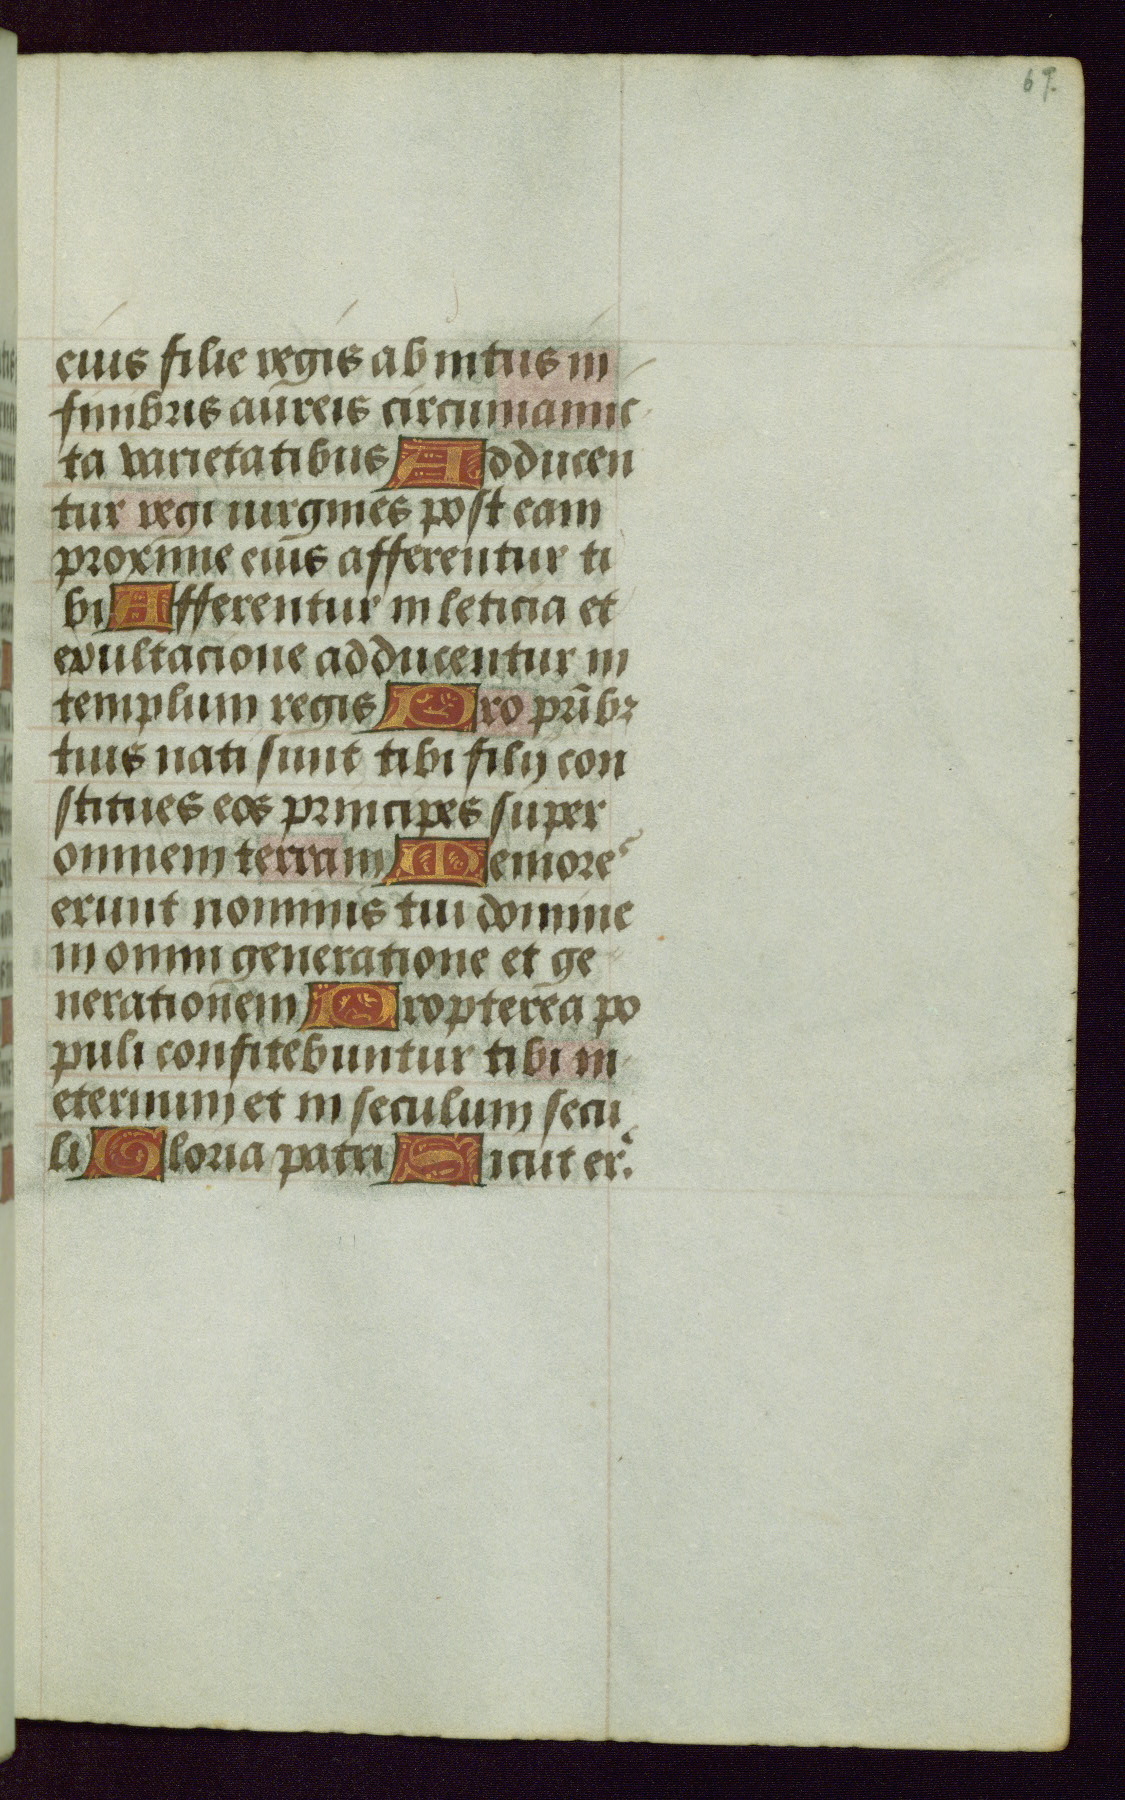 67.
eius filie regis ab intus in
fimbriis aureis circumamic
ta varietatibus Adducen
tur regi virgines post eam
proxime eius afferentur ti
bi Afferentur in leticia et
exultacione adducentur in
templum regis Pro pr̃ibꝫ
tuis nati sunt tibi filij con
stitues eos principes super
omnem terram Memore˜
erunt nominis tui domine
in omni generatione et ge
nerationem Propterea po
puli confitebuntur tibi in
eternum et in seculum secu
li Gloria patri Sicut er̃.